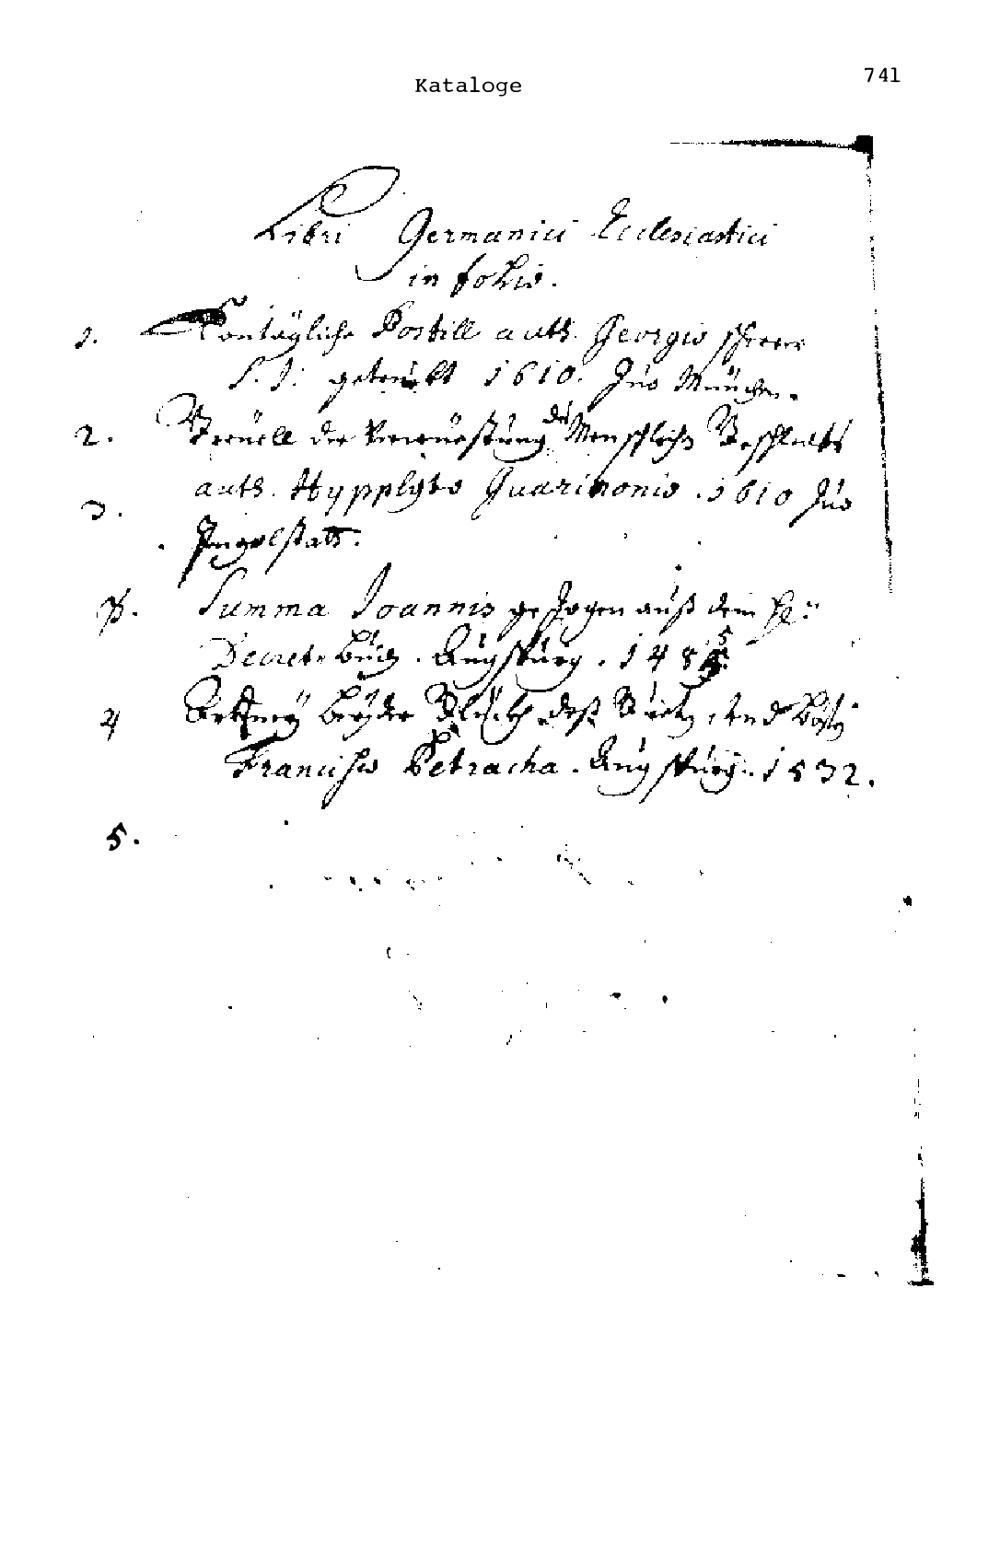 Kataloge
741
Libri Germanici Ecclesiastici
in folio.
1. Sontägliche Postill auth. Georgio Scherer
S. J. getruckt 1610. Zuo München.
2. Greüell der Verwüestung deß Menschlichen Geschlechts
auth. Hypplyto Guarinonio. 1610 Zuo
3.
Ingolstatt.
Summa Joannis gezogen auß dem hl:
Decret buch. Augspurg. 1485
4 Artzney beyder Glückh deß guetten und bösen
Francisco Petracha. Augspurg. 1532.
5.